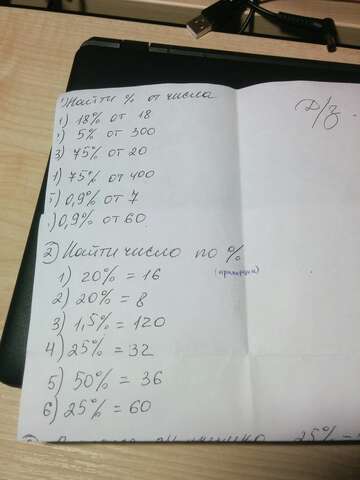 Найти % от числа
1) 18% от 18
2) 5% от 300
3) 75% от 20
4) 75% от 400
5) 0,9% от 7
6) 0,9% от 60
Д/з.
2) Найти число по %
1) 20% = 16
2) 20% = 8
3) 1,5% = 120
4) 25% = 32
5) 50% = 36
6) 25% = 60
25%